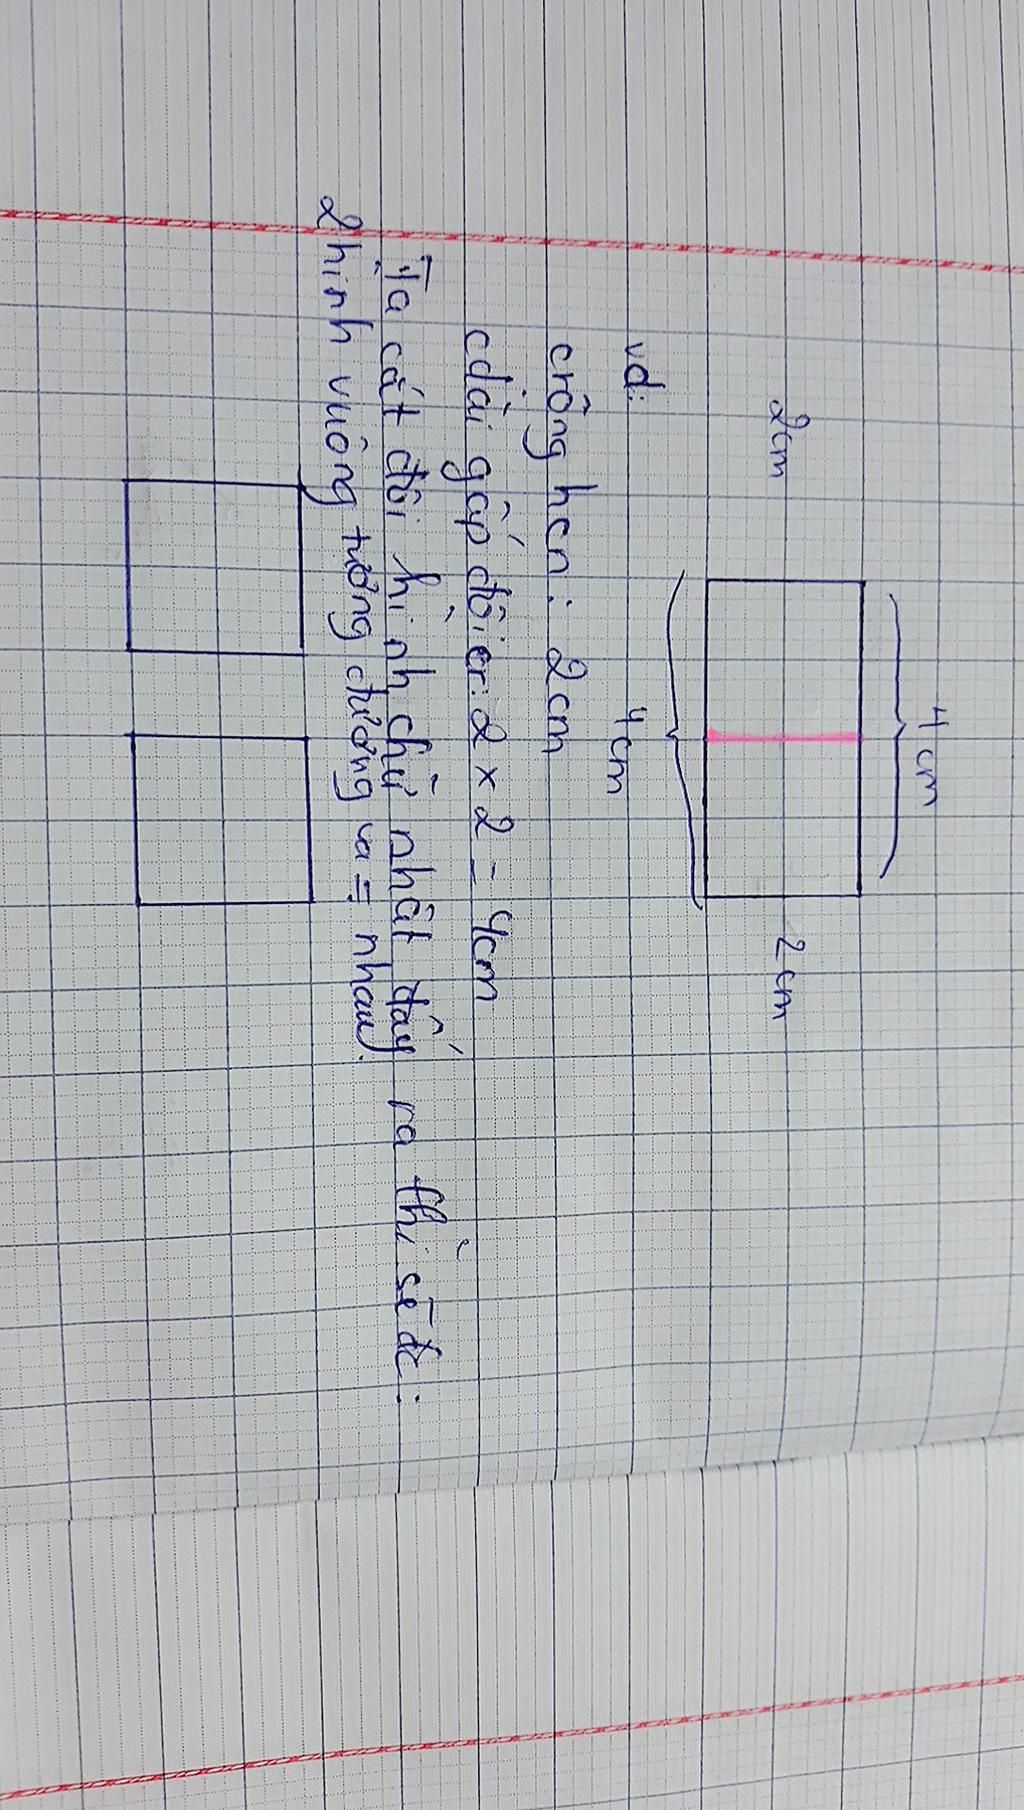 4cm
2cm 2cm
4cm
vd:
crông hcn: 2cm
cdài gấp đôi cr: 2 x 2 = 4cm
Ta cắt đôi hình chữ nhật đấy ra thì sẽ đc:
2 hình vuông tương đương và = nhau.